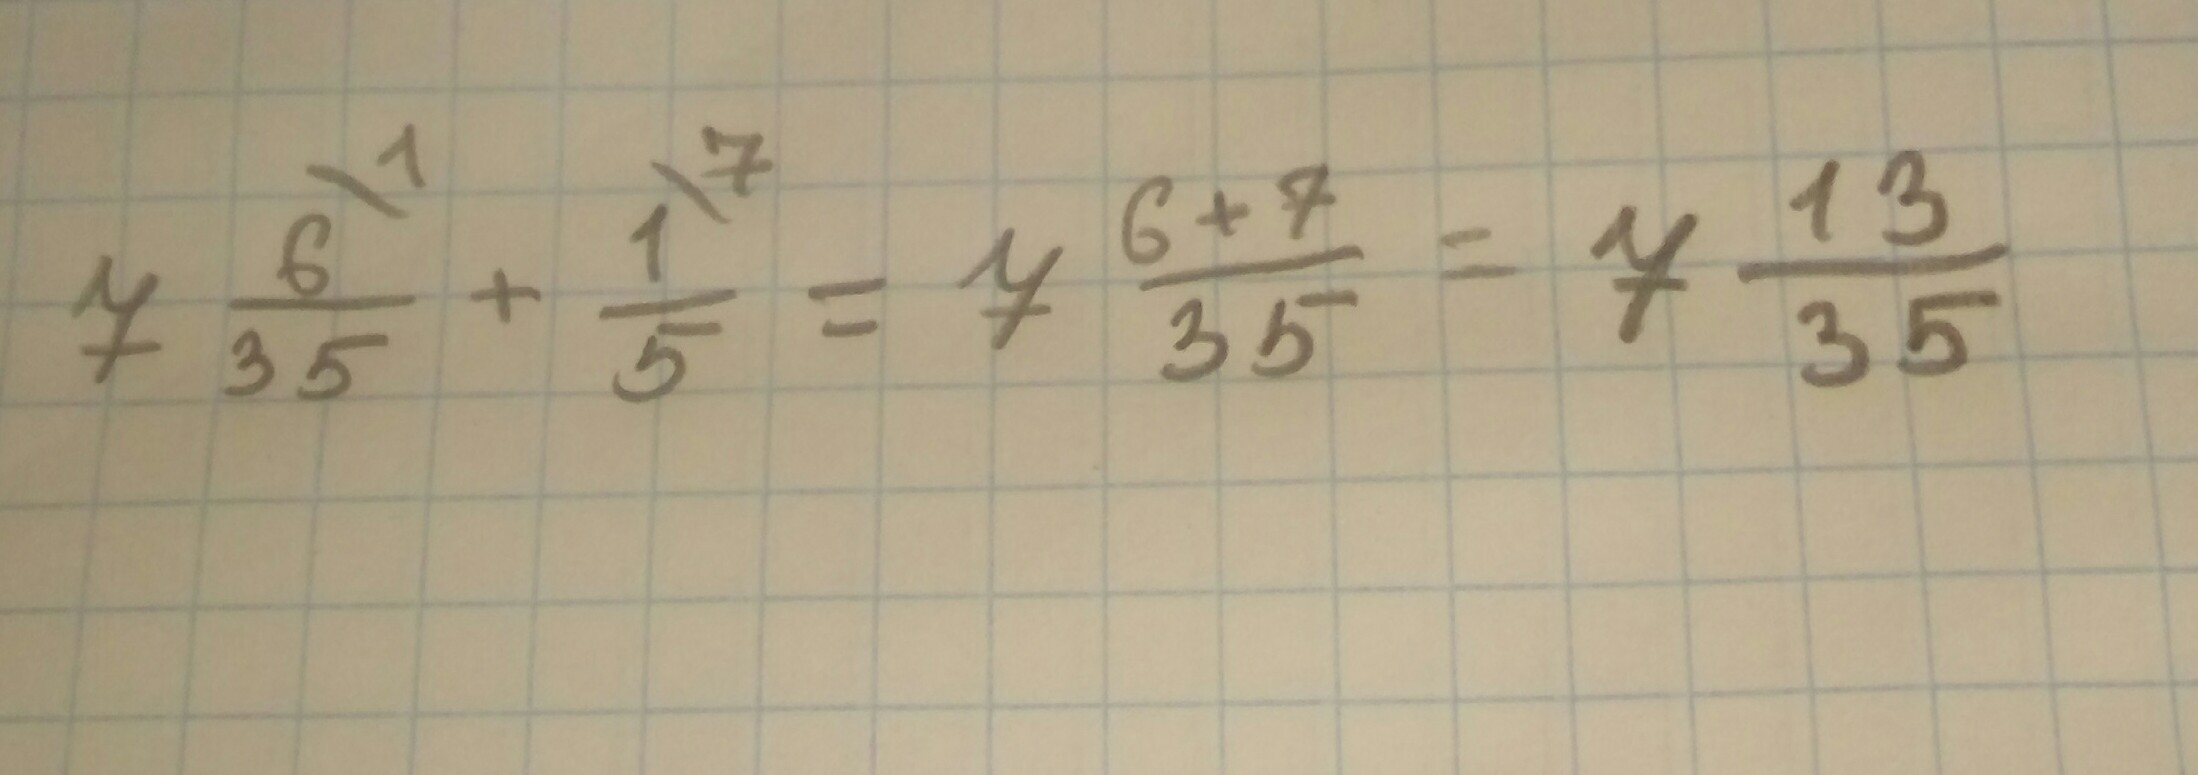 7 6\1/35 + 1\7/5 = 7 6+7/35 = 7 13/35